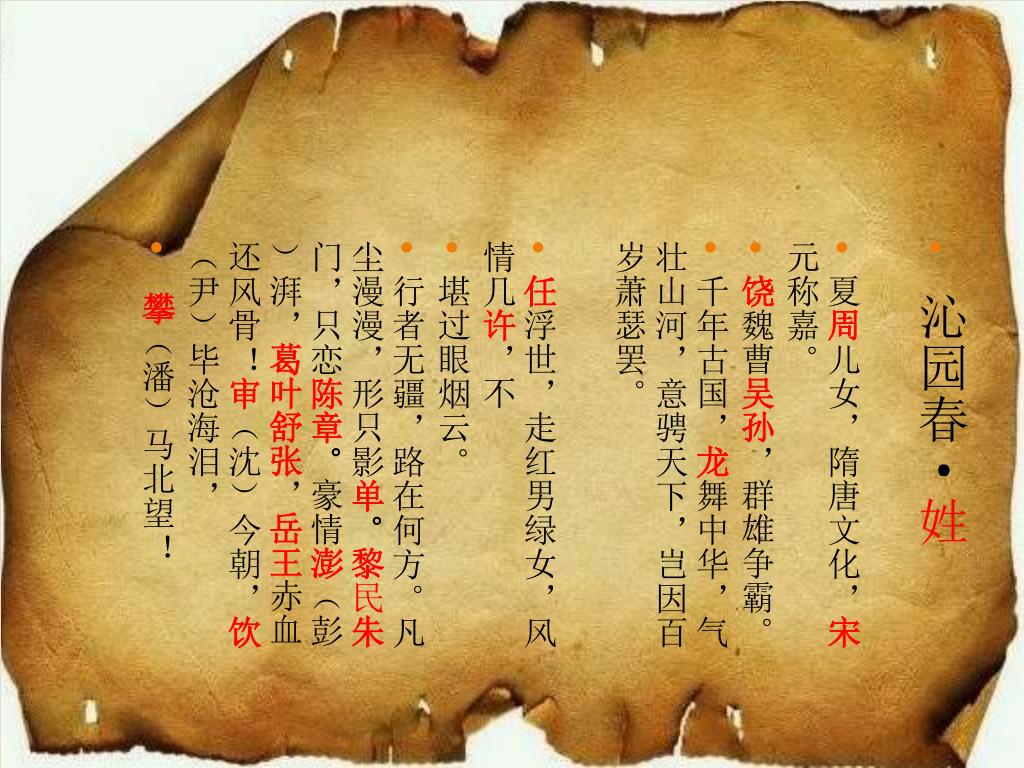 沁园春·姓
夏周儿女，隋唐文化，宋
元称嘉。
饶魏曹吴孙，群雄争霸。
千年古国，龙舞中华，气
壮山河，意骋天下，岂因百
岁萧瑟罢。
任浮世，走红男绿女，风
情几许，不
堪过眼烟云。
行者无疆，路在何方。凡
尘漫漫，形只影单。黎民朱
门，只恋陈章。豪情澎（彭
）湃，葛叶舒张，岳王赤血
还风骨！审（沈）今朝，饮
（尹）毕沧海泪，
攀（潘）马北望！